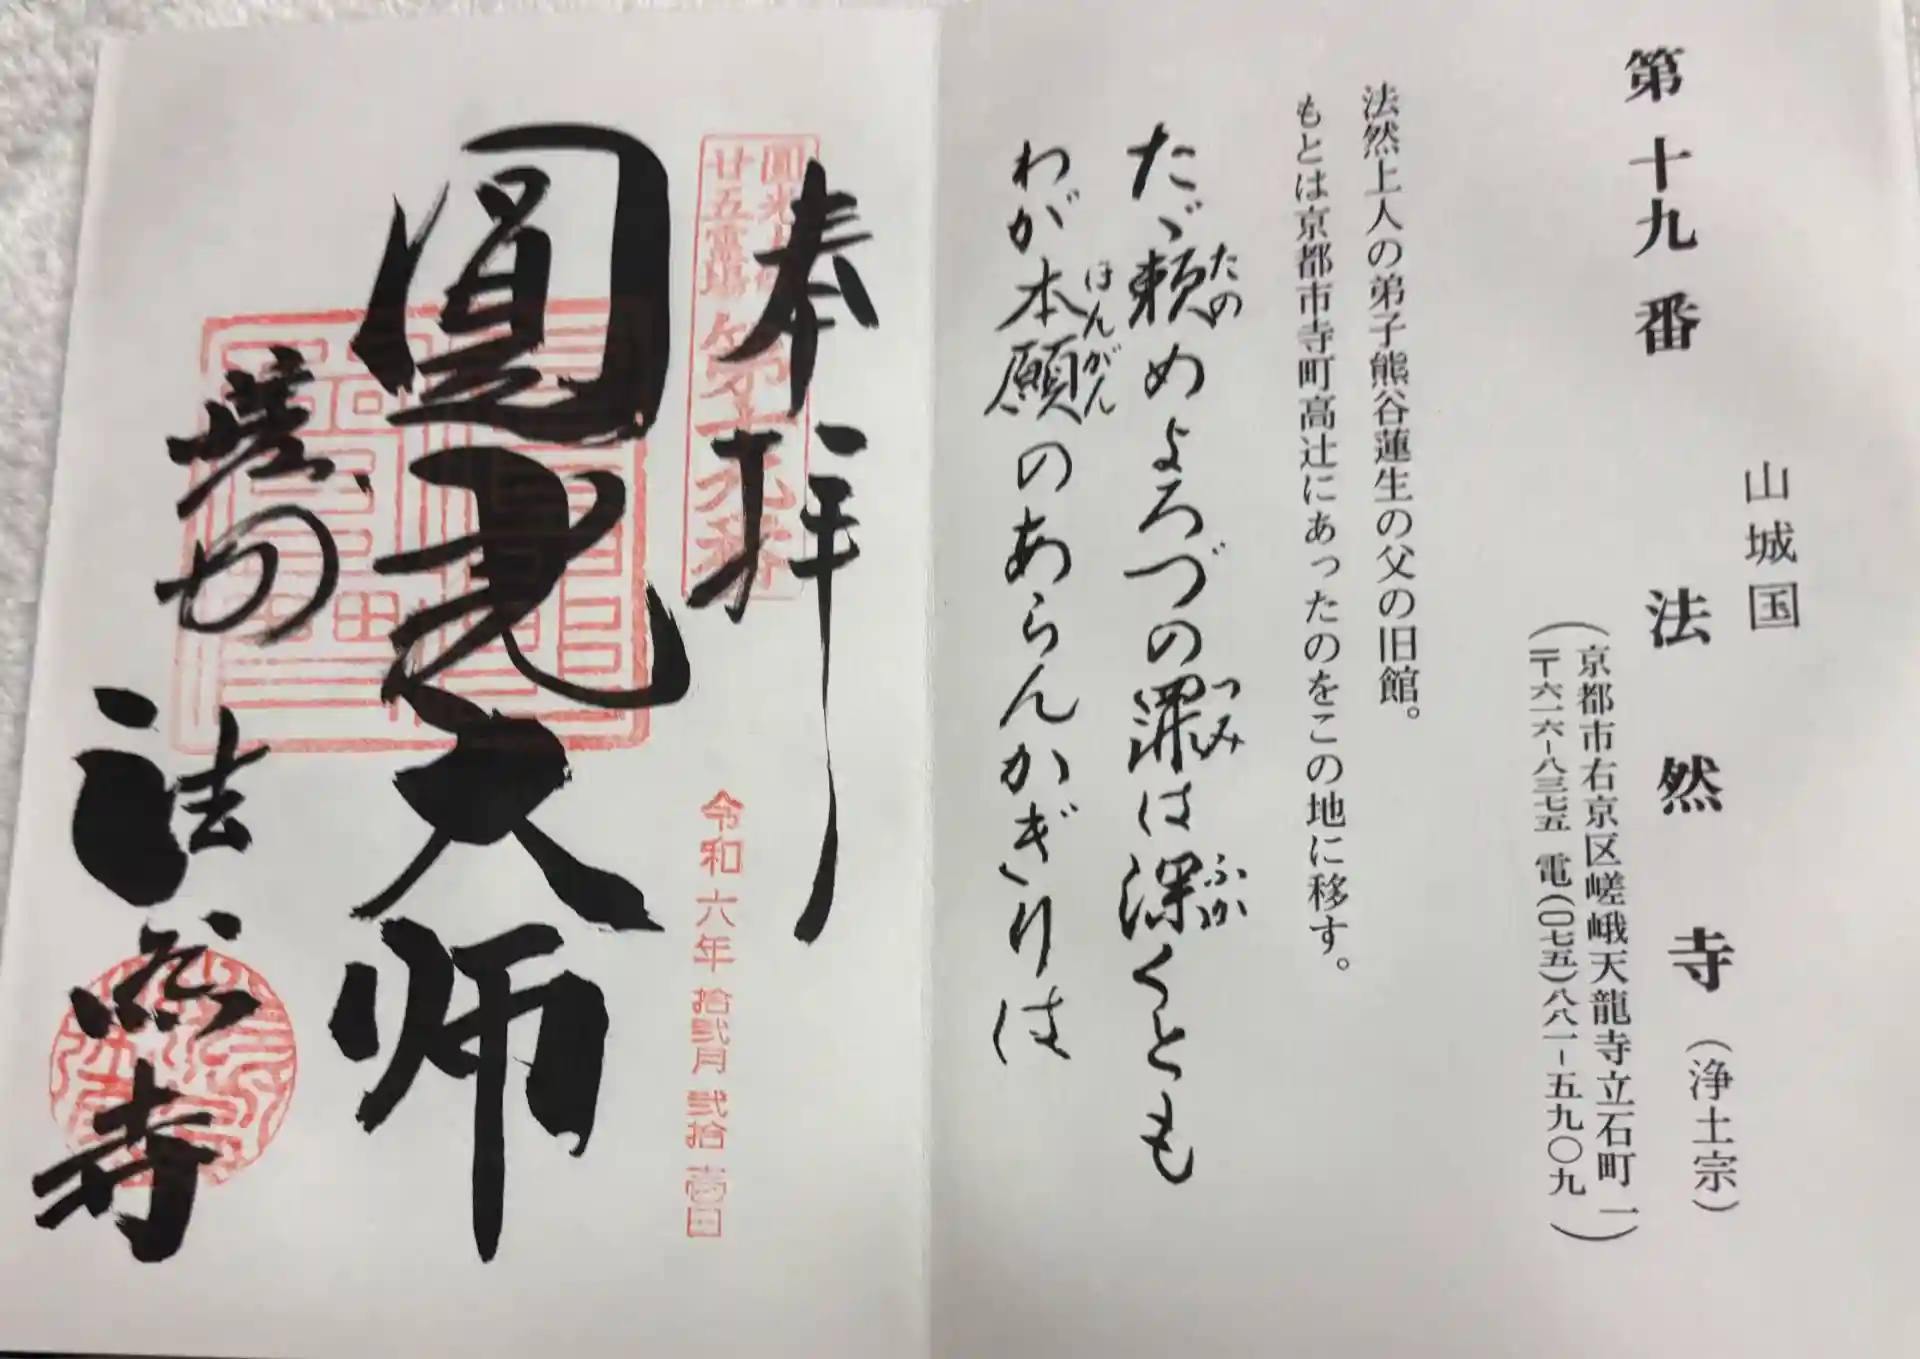 山城国
第十九番
法然寺(浄土宗)
(京都市右京区嵯峨天龍寺立石町一
〒六一六-八三七五 電(〇七五)八八一-五九〇九)
法然上人の弟子熊谷蓮生の父の旧館。
もとは京都市寺町高辻にあったのをこの地に移す。
たゞ頼めよろづの罪は深くとも
たの
つみ
ふか
わが本願のあらんかぎりは
ほんがん
奉拝
圓光大師
廿五霊場
第十九番
令和六年拾弐月弐拾壹日
圓光大師
法然寺